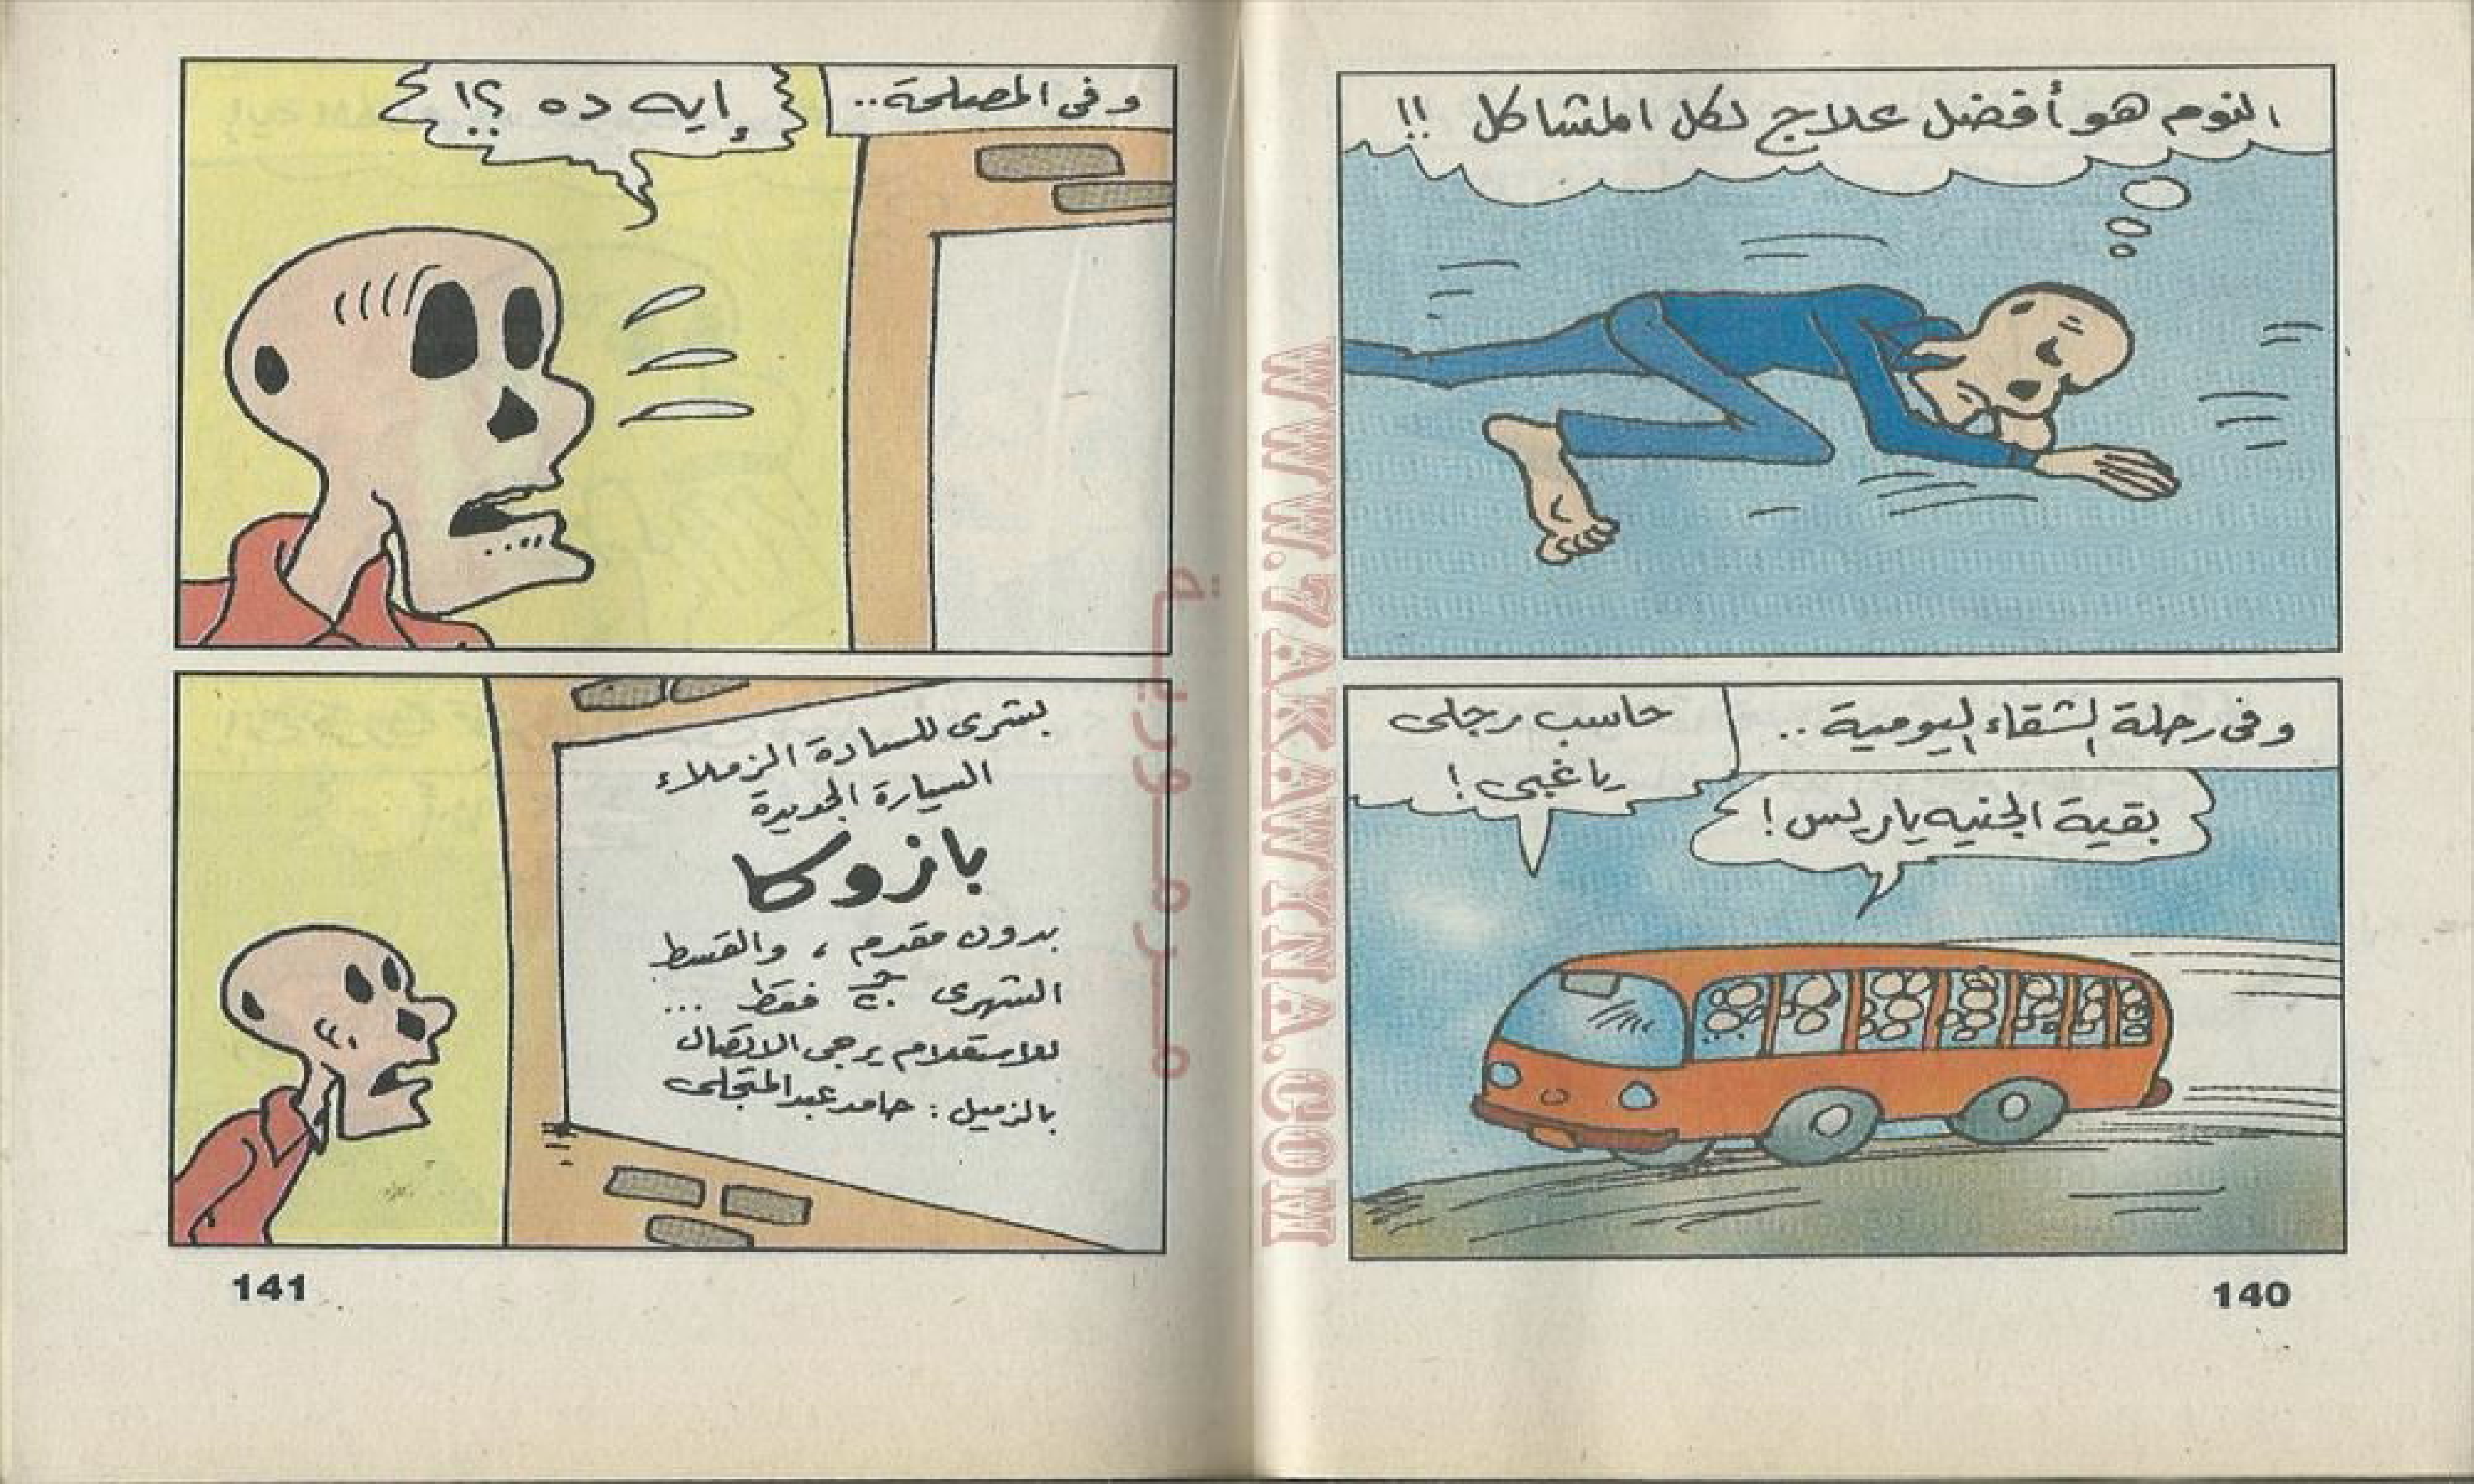 النوم هو أفضل علاج لكل المشاكل !!
وفى رحلة الشقاء اليومية ..
بقية الجنيه ياريس !
حاسب رجلى
ياغبى !
140
وفى المصلحة ..
إيه ده ؟!
بشرى للسادة الزملاء
السيارة الجديدة
بازوكا
بدون مقدم ، والقسط
الشهرى فقط ...
للاستعلام يرجى الاتصال
بالزميل : حامد عبد المتجلى
141